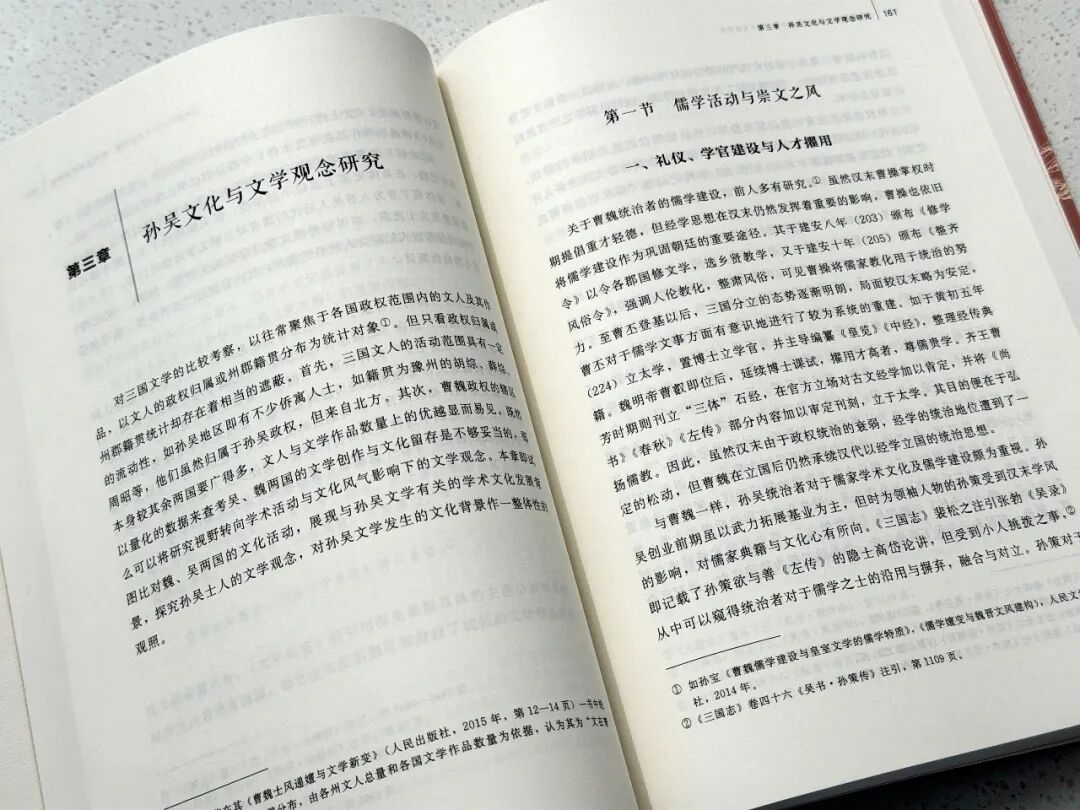 第三章
孙吴文化与文学观念研究
对三国文学的比较考察，以往常聚焦于各国政权范围内的文人及其作
品，以文人的政权归属或州郡籍贯分布为统计对象①。但只看政权归属或
州郡籍贯统计却存在着相当的遮蔽。首先，三国文人的活动范围具有一定
的流动性，如孙吴地区即有不少侨寓人士，如籍贯为豫州的胡综、薛综、
周昭等，他们虽然归属于孙吴政权，但来自北方。其次，曹魏政权的辖区
本身较其余两国要广得多，文人与文学作品数量上的优越显而易见。既然
以量化的数据来查考吴、魏两国的文学创作与文化留存是不够妥当的，那
么可以将研究视野转向学术活动与文化风气影响下的文学观念。本章即试
图比对魏、吴两国的文化活动，展现与孙吴文学有关的学术文化发展背
景，探究孙吴士人的文学观念，对孙吴文学发生的文化背景作一整体性的
观照。
在其《曹魏士风递嬗与文学新变》（人民出版社，2015年，第12—14页）一书中统
分布，由各州文人总量和各国文学作品数量为依据，认为其为“文在曹
第三章 孙吴文化与文学观念研究 161
第一节 儒学活动与崇文之风
一、礼仪、学官建设与人才擢用
关于曹魏统治者的儒学建设，前人多有研究。① 虽然汉末曹操掌权时
期提倡重才轻德，但经学思想在汉末仍然发挥着重要的影响，曹操也依旧
将儒学建设作为巩固朝廷的重要途径。其于建安八年（203）颁布《修学
令》以令各郡国修文学，选乡贤教学，又于建安十年（205）颁布《整齐
风俗令》，强调人伦教化，整肃风俗，可见曹操将儒家教化用于统治的努
力，至曹丕登基以后，三国分立的态势逐渐明朗，局面较汉末略为安定，
曹丕对于儒学文事方面有意识地进行了较为系统的重建。如于黄初五年
（224）立太学，置博士立学官，并主导编纂《皇览》《中经》，整理经传典
籍。魏明帝曹叡即位后，延续博士课试，擢用才高者，尊儒贵学。齐王曹
芳时期则刊立“三体”石经，在官方立场对古文经学加以肯定，并将《尚
书》《春秋》《左传》部分内容加以审定刊刻，立于太学。其目的便在于弘
扬儒教。因此，虽然汉末由于政权统治的衰弱，经学的统治地位遭到了一
定的松动，但曹魏在立国后仍然承续汉代以经学立国的统治思想。
与曹魏一样，孙吴统治者对于儒家学术文化及儒学建设颇为重视。孙
吴创业前期虽以武力拓展基业为主，但时为领袖人物的孙策受到汉末学风
的影响，对儒家典籍与文化心有所向。《三国志》裴松之注引张勃《吴录》
即记载了孙策欲与善《左传》的隐士高岱论讲，但受到小人挑拨之事，②
从中可以窥得统治者对于儒学之士的沿用与摒弃，融合与对立。孙策对于
① 如孙宝《曹魏儒学建设与皇室文学的儒学特质》，《儒学嬗变与魏晋文风建构》，人民文
社，2014年。
②《三国志》卷四十六《吴书·孙策传》注引，第1109页。